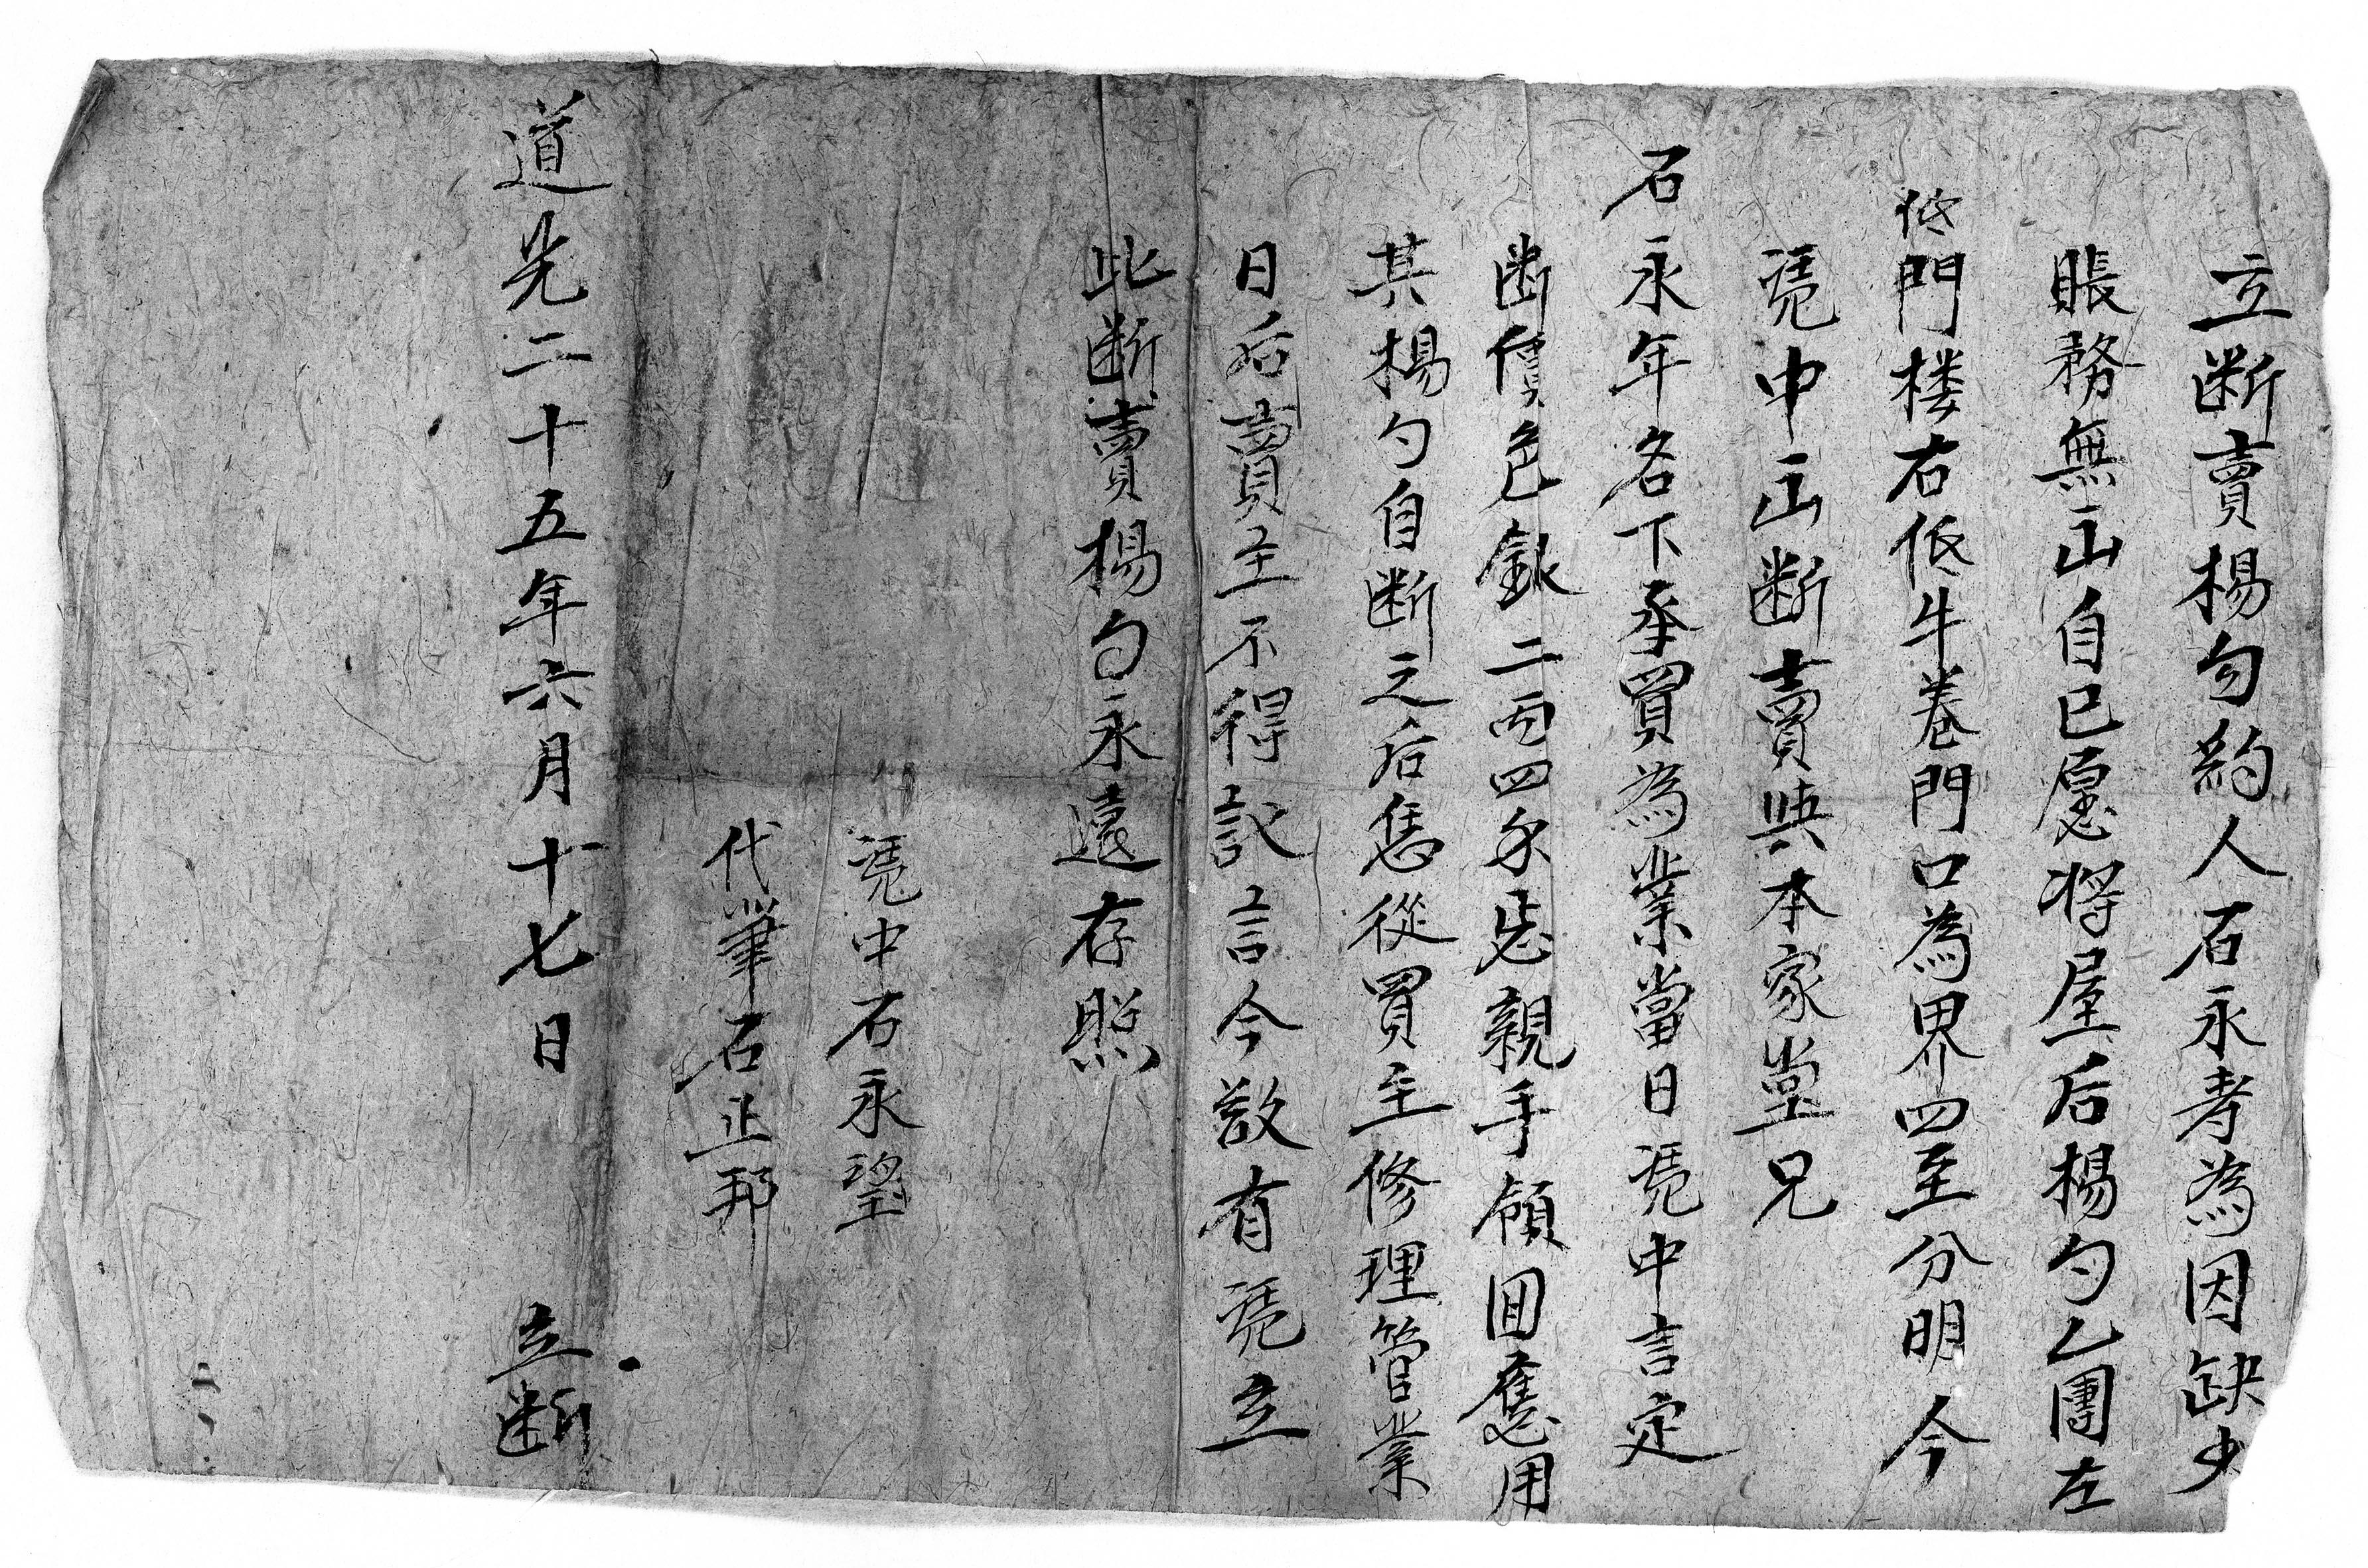 立断賣楊勺約人石永孝為因缺少
賬務無出自己愿将屋后楊勺乙團左
低門楼右低牛巻門口為界四至分明今
凴中出断賣與本家堂兄
石永年名下承買為業當日凴中言定
断價色銀二両四錢親手領囬應用
其楊勺自断之后恁從買主修理管業
日后賣主不得訛言今欲有凴立
此断賣楊勺永遠存照
凴中石永望
代筆石正邦
道光二十五年六月十七日 立断